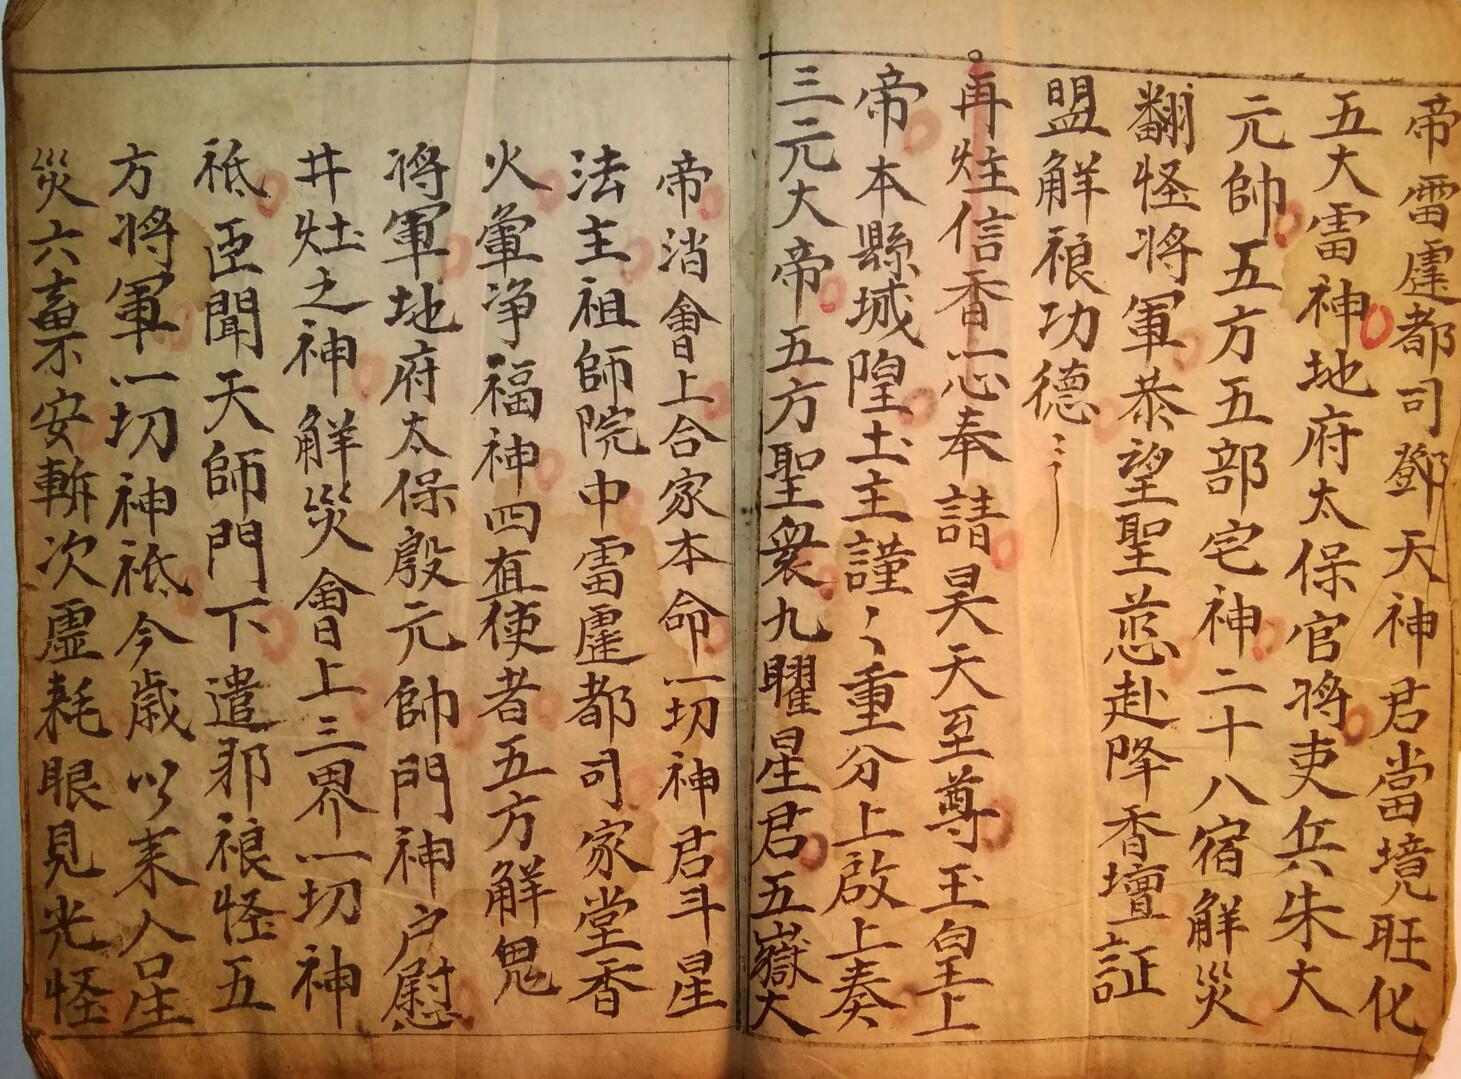 帝雷霆都司鄧天神君當境旺化
五大雷神地府太保官將吏兵朱大
元帥五方五部宅神二十八宿解災
翻怪將軍恭望聖慈赴降香壇証
盟解禳功德
再炷信香一心奉請昊天至尊玉皇上
帝本縣城隍土主謹〻重分上啟上奏
三元大帝五方聖衆九曜星君五嶽大
帝消會上合家本命一切神君斗星
法主祖師院中雷霆都司家堂香
火彙净福神四直使者五方解鬼
將軍地府太保殷元帥門神户尉
井灶之神解災會上三界一切神
祗臣聞天師門下遣邪禳怪五
方將軍一切神祗今歲以来人口生
災六畜不安斬次虛耗眼見光怪